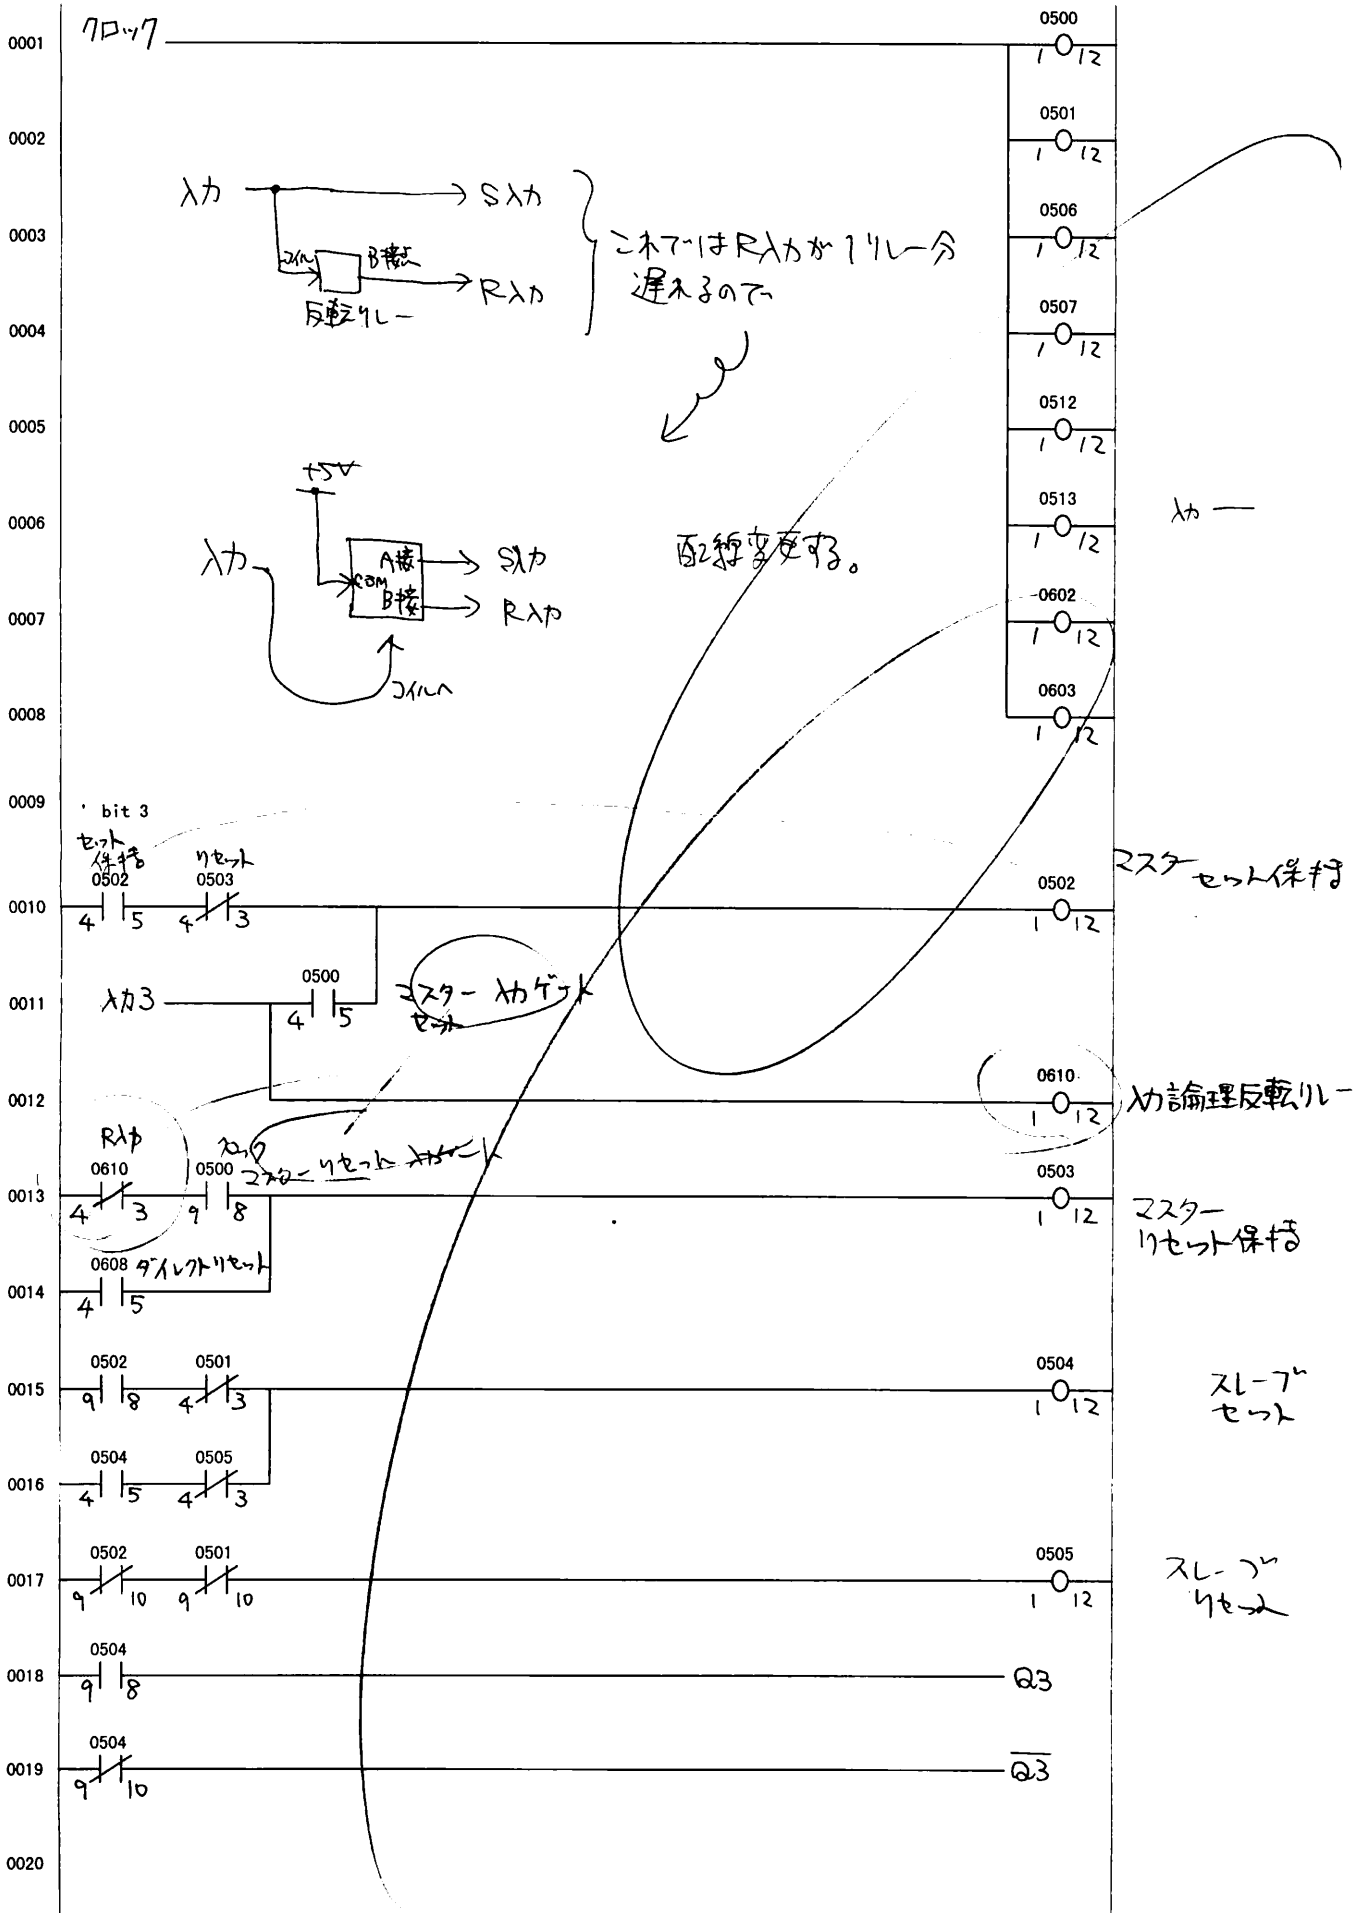 0001 クロック 0500
1 12
0002 0501
1 12
入力 S入力
0003 0506
1 12
コイル B接点
R入力
反転リレー
これではR入力が1リレー分
遅れるので
0004 0507
1 12
0005 0512
1 12
+5V
0006 0513
1 12
入力
入力 COM A接 S入力
B接 R入力
配線変更する。
コイルへ
0007 0602
1 12
0008 0603
1 12
0009
bit 3
セット
保持 リセット
0010 0502 0503 0502
4 5 4 3 1 12
マスター
セット保持
0011 入力3 0500
4 5
マスター 入力ゲート
セット
0012 0610
1 12
入力論理反転リレー
R入力
クロック
マスターリセット 入力ゲート
0013 0610 0500 0503
4 3 9 8 1 12
マスター
リセット保持
0014 0608 ダイレクトリセット
4 5
0015 0502 0501 0504
9 8 4 3 1 12
スレーブ
セット
0016 0504 0505
4 5 4 3
0017 0502 0501 0505
9 10 9 10 1 12
スレーブ
リセット
0018 0504 Q3
9 8
0019 0504 Q3
9 10
0020